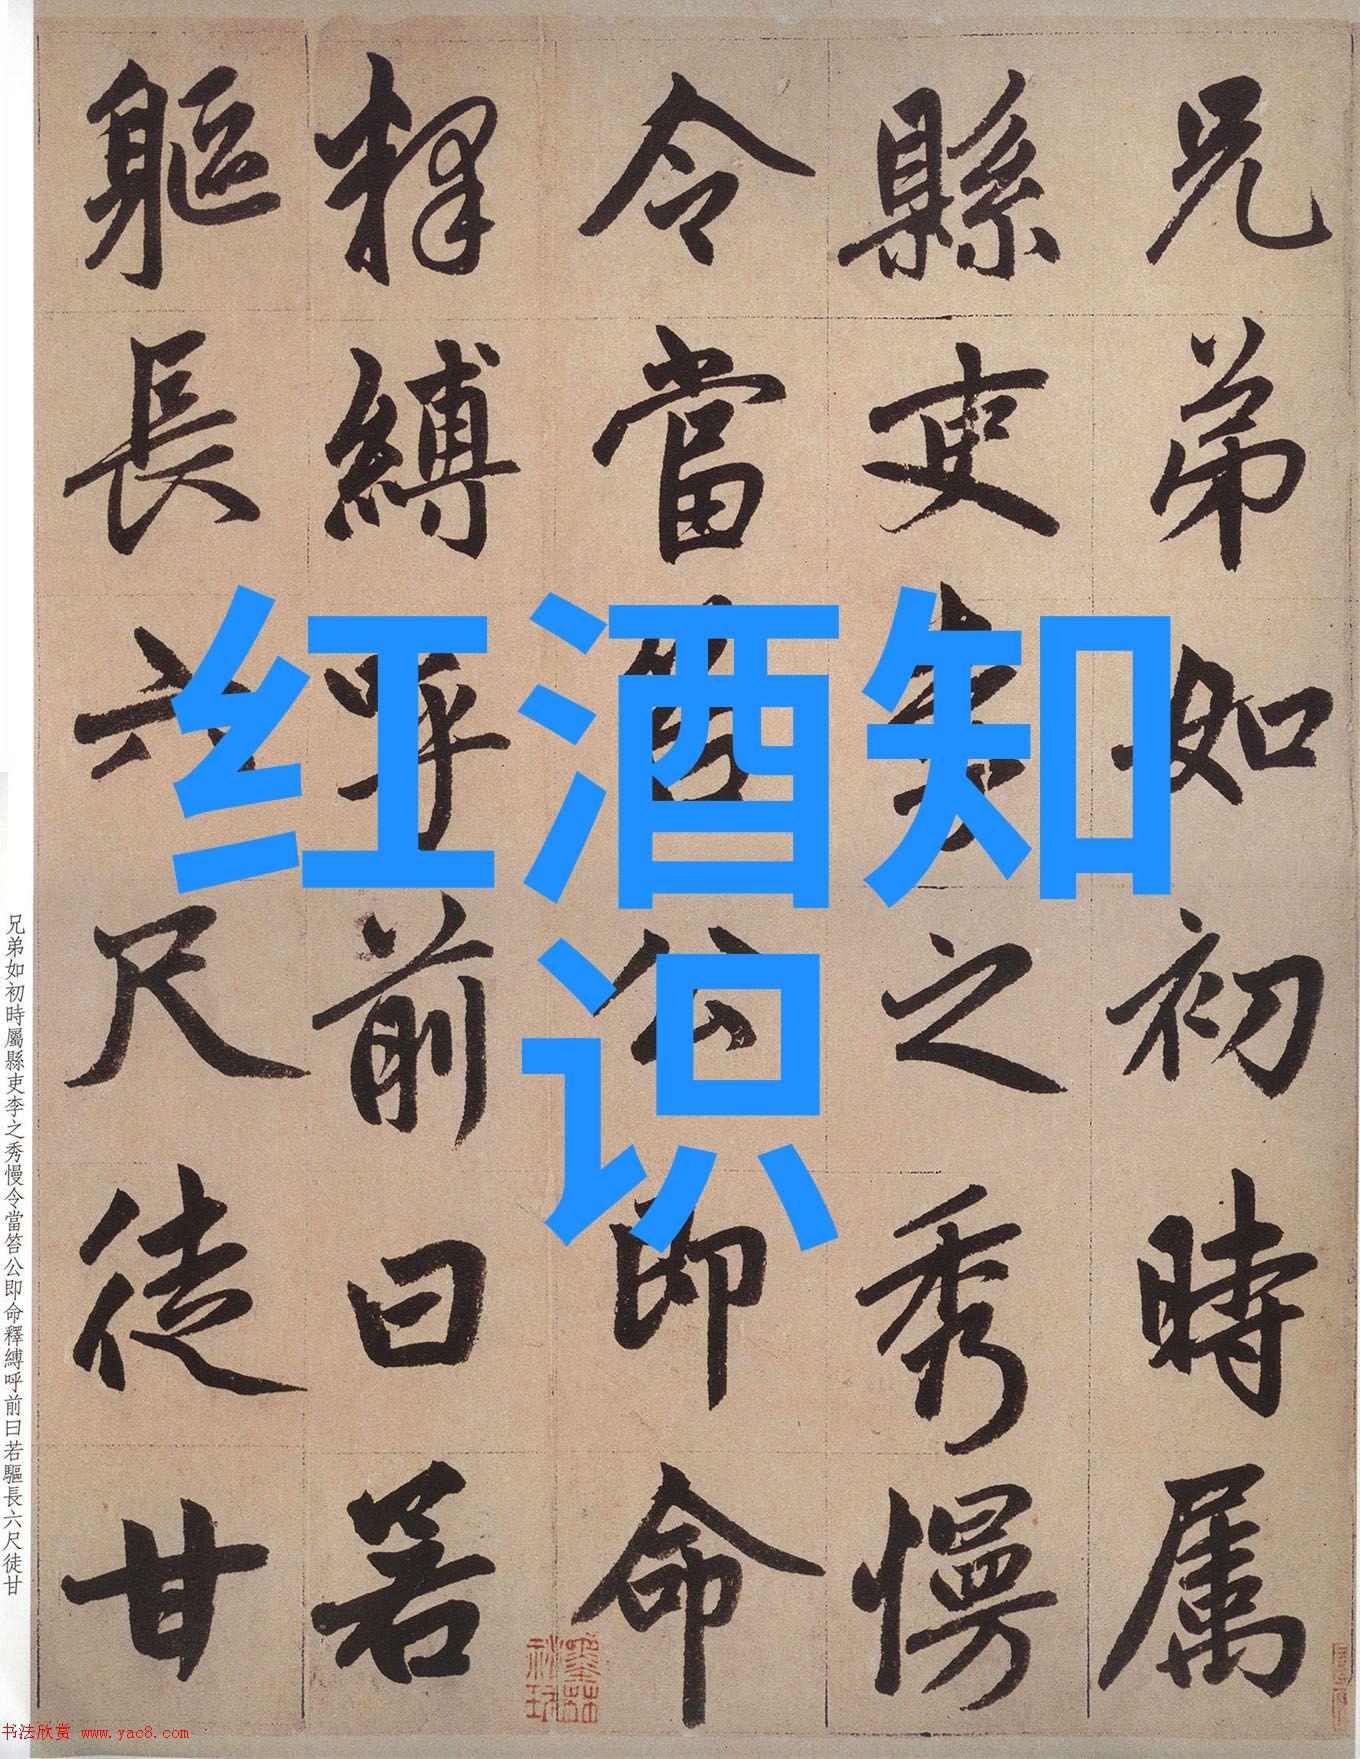 兄弟如初時属
縣吏李之秀慢
令當笞公即命
釋縛呼前曰若
軀長六尺徒甘
红酒知
识
兄弟如初時屬縣吏李之秀慢令當笞公即命釋縛呼前曰若驅長六尺徒甘
书法欣赏 www.yac8.com